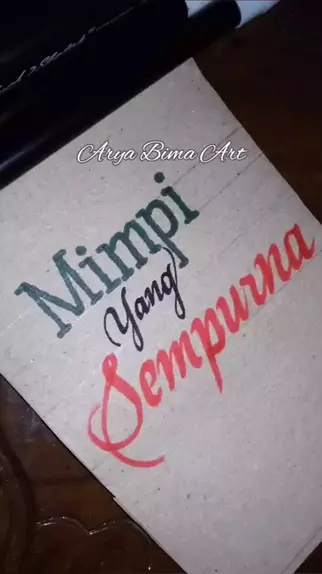 Arya Bima Art
Mimpi
Yang
Sempurna